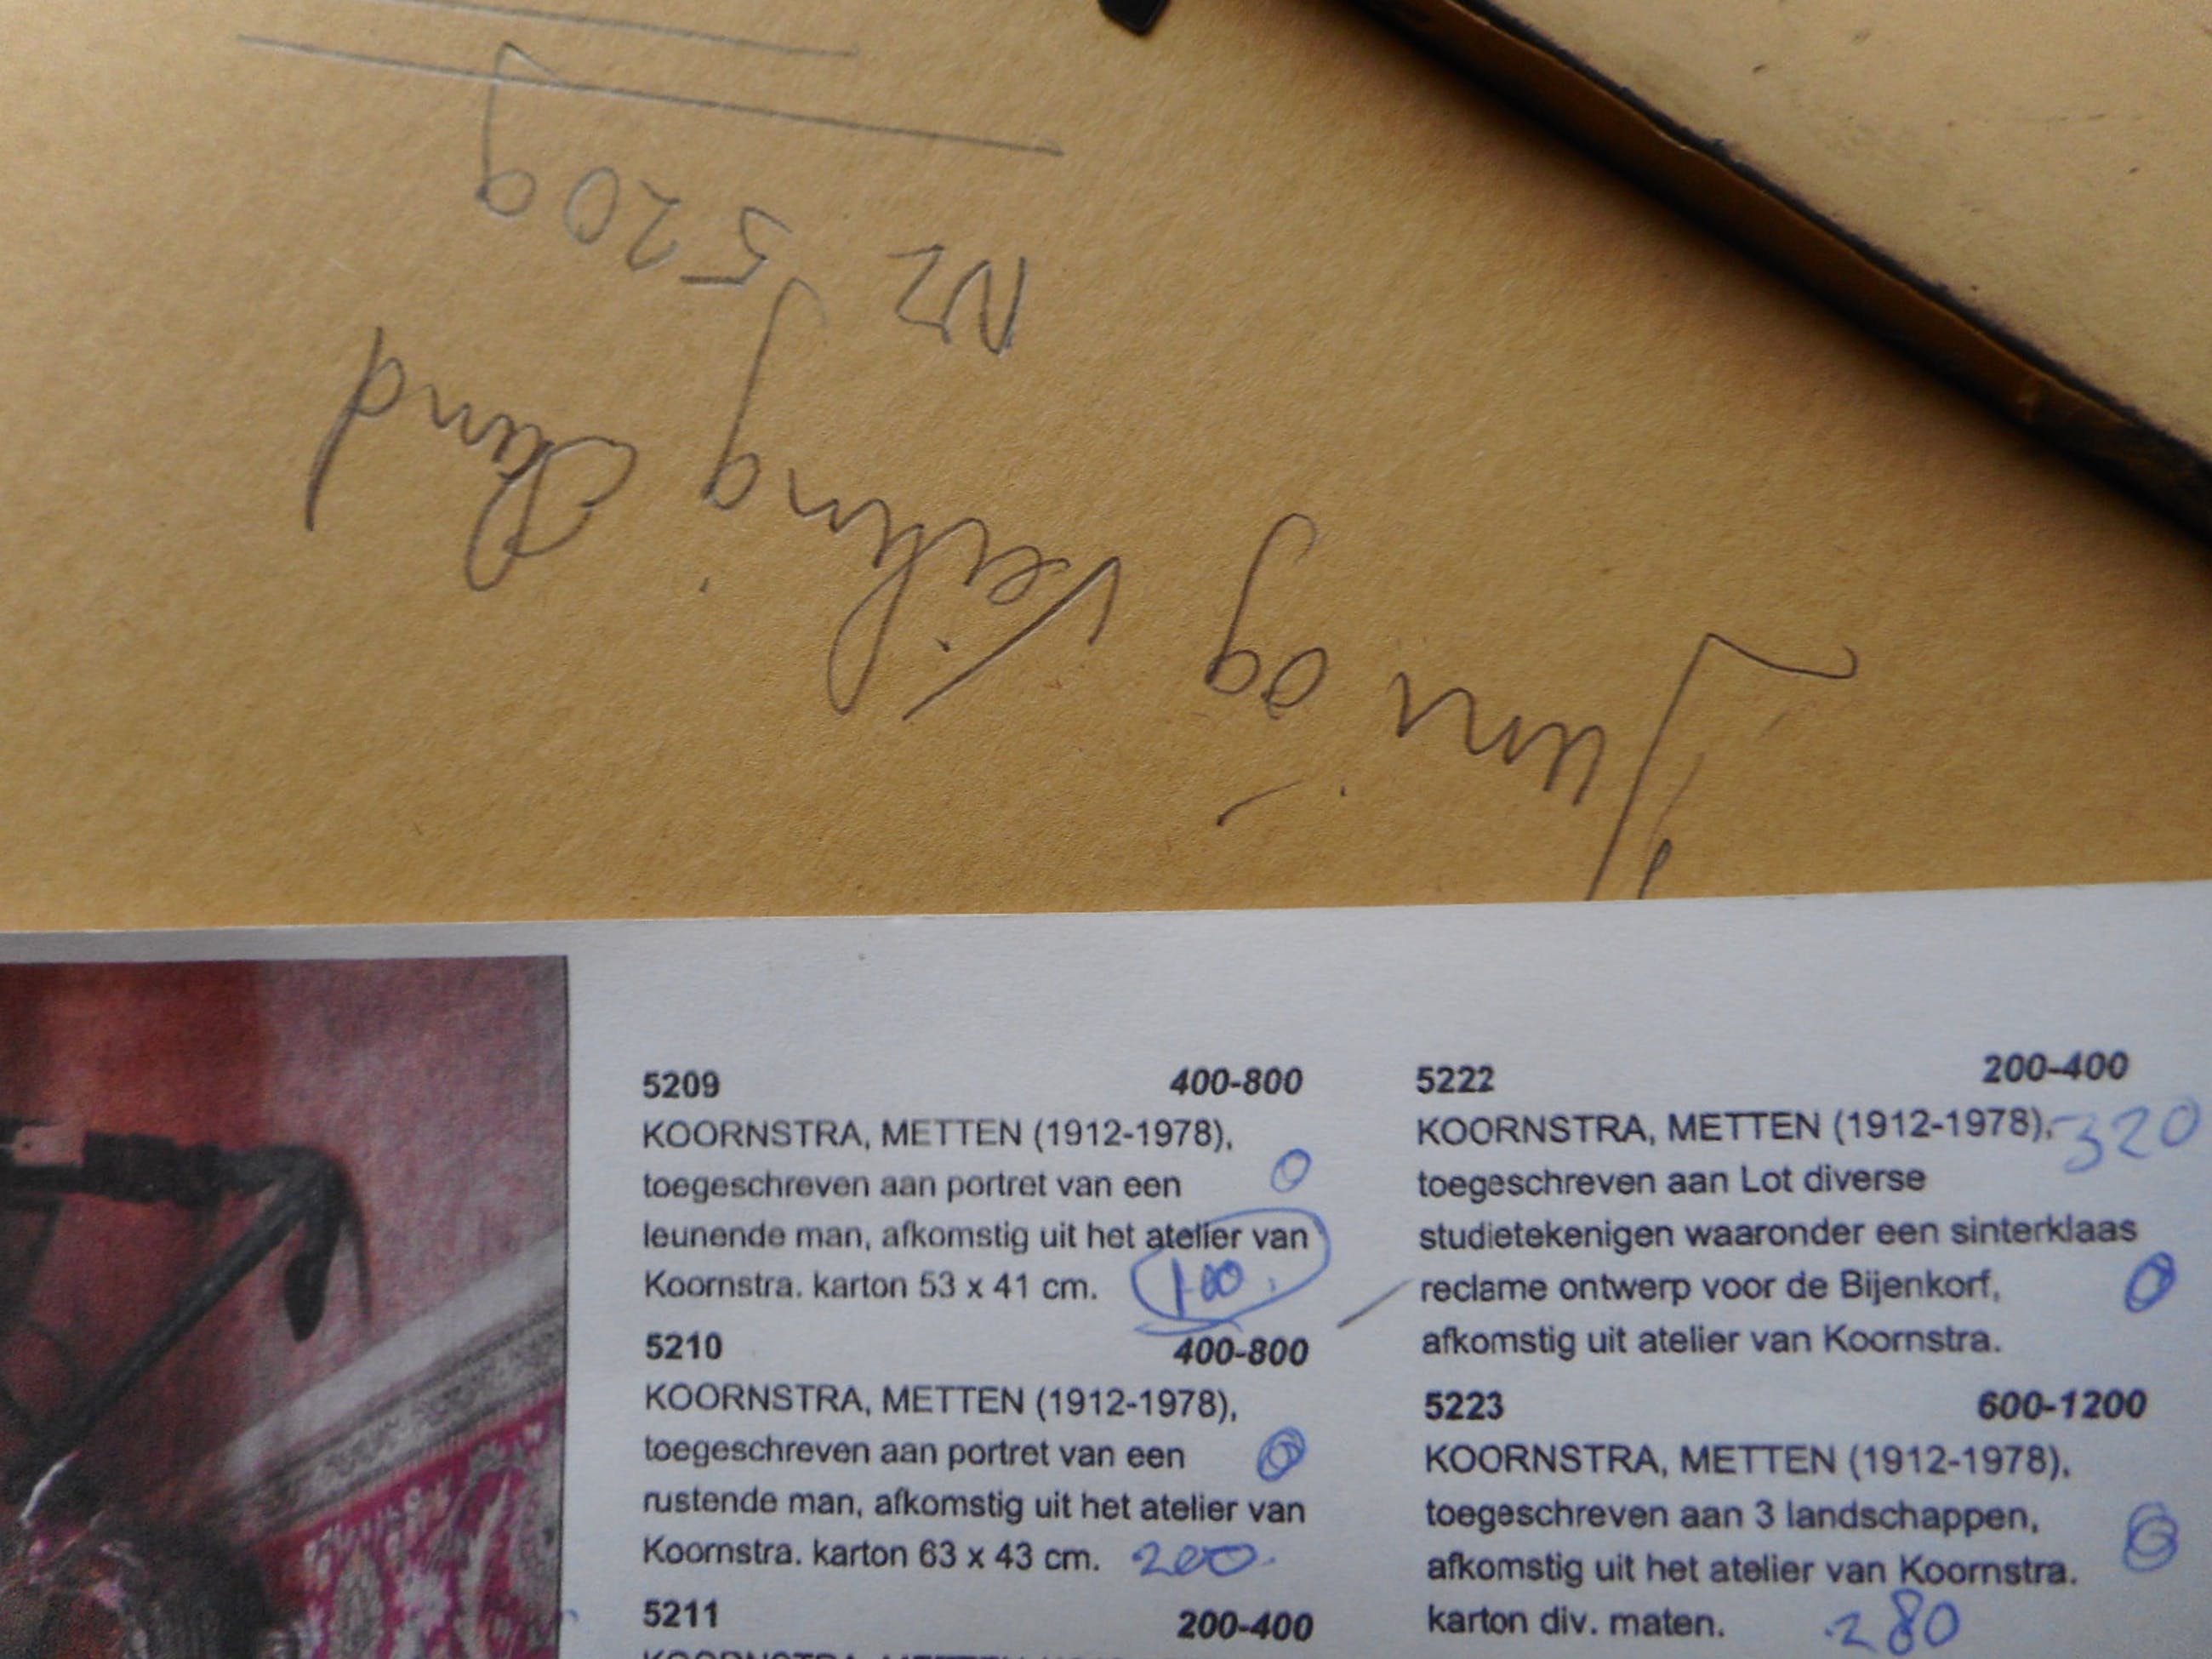 Juni 09 Veiling Eland
Nr 5209
5209 400-800
KOORNSTRA, METTEN (1912-1978),
toegeschreven aan portret van een 0
leunende man, afkomstig uit het atelier van
Koornstra. karton 53 x 41 cm. 100.
5210 400-800
KOORNSTRA, METTEN (1912-1978),
toegeschreven aan portret van een
rustende man, afkomstig uit het atelier van
Koornstra. karton 63 x 43 cm. 200.
5211 200-400
KOORNSTRA, METTEN
5222 200-400
KOORNSTRA, METTEN (1912-1978), 320
toegeschreven aan Lot diverse
studietekenigen waaronder een sinterklaas
reclame ontwerp voor de Bijenkorf,
afkomstig uit atelier van Koornstra.
5223 600-1200
KOORNSTRA, METTEN (1912-1978),
toegeschreven aan 3 landschappen,
afkomstig uit het atelier van Koornstra.
karton div. maten. 280